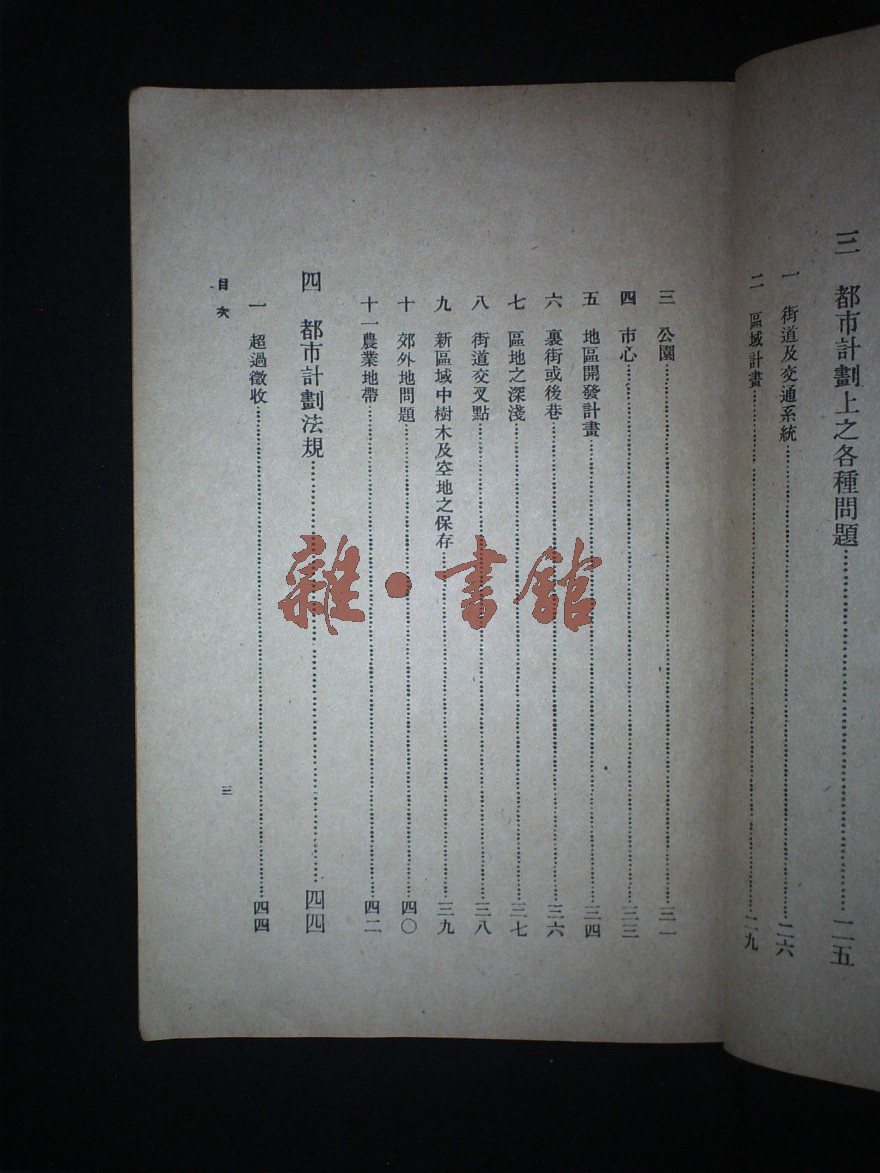 三　都市計劃上之各種問題……二五
一　街道及交通系統……二六
二　區域計畫……二九
三　公園……三一
四　市心……三三
五　地區開發計畫……三四
六　裏街或後巷……三六
七　區地之深淺……三七
八　街道交叉點……三八
九　新區域中樹木及空地之保存……三九
十　郊外地問題……四〇
十一農業地帶……四二
四　都市計劃法規……四四
一　超過徵收……四四
目次
三
雜·書館